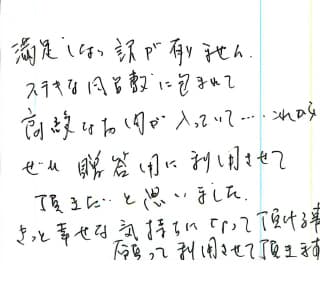 満足しない訳が有りません.
ステキな風呂敷に包まれて
高級なお肉が入っていて…これから
ぜひ贈答用に利用させて
頂きたいと思いました.
きっと幸せな気持ちになって頂ける事
願って利用させて頂きます